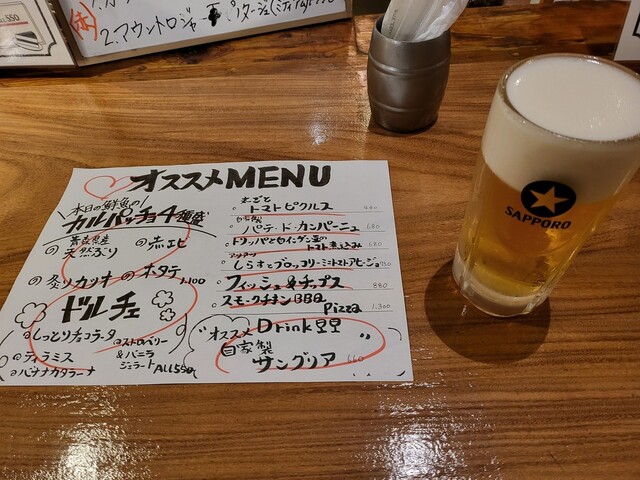 ¥550
(赤)
2.マウントロジャー
オススメMENU
本日の鮮魚の
カルパッチョ4種盛
青森県産
天然ぶり
赤エビ
炙りカツオ
ホタテ
1.100
ドルチェ
しっとりチョコラータ
ティラミス
バナナカタラーナ
ストロベリー
&バニラ
ジェラート
ALL550
まるごと
トマトピクルス
自家製
パテ・ド・カンパーニュ 680
トリッパと白インゲン豆の
トマト煮込み 680
しらすとブロッコリーミニトマトアヒージョ
フィッシュ&チップス 880
スモークチキンBBQ
Pizza 1.300
オススメ Drink
自家製
サングリア 660
SAPPORO